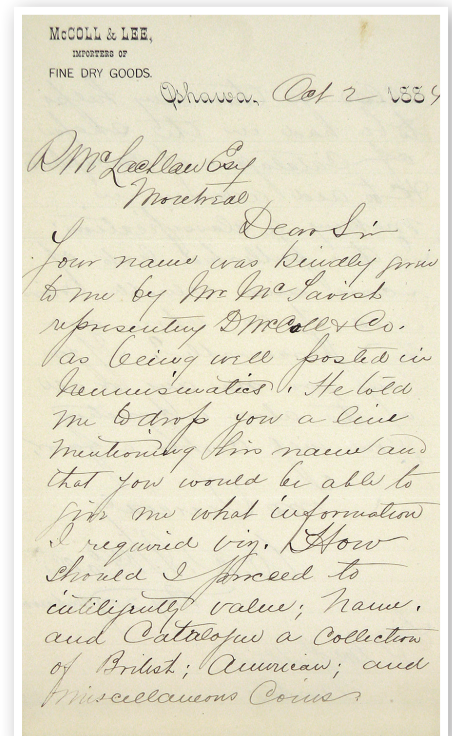 McCOLL & LEE,
IMPORTERS OF
FINE DRY GOODS.
Oshawa, Oct 2 1884
R McLachlan Esq
Montreal
Dear Sir
Your name was kindly given
to me by Mr. McTavish
representing D McCall & Co.
as being well posted in
Neumismatics. He told
me to drop you a line
mentioning his name and
that you would be able to
give me what information
I required viz. How
should I proceed to
intiligently value; name.
and Catalogue a collection
of British; American; and
Miscellaneous Coins.